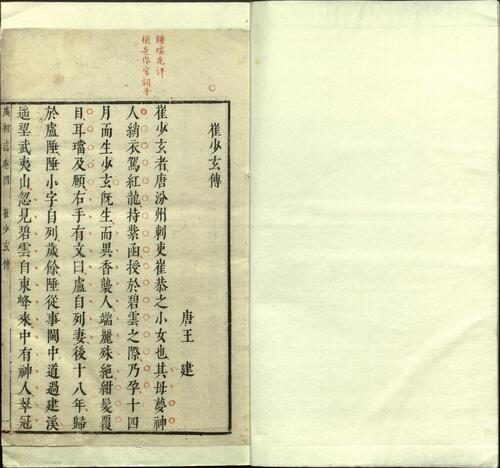 鍾瑞先評
崔少玄傳
唐王建
崔少玄者唐汾州刺吏崔恭之小女也其母夢神
人綃衣駕紅龍持紫函授於碧雲之際乃孕十四
月而生少玄旣生而異香襲人端麗殊絕紺髮覆
目耳璫及頤右手有文曰盧自列妻後十八年歸
於盧陲陲小字自列歲餘陲從事閩中道過建溪
遥望武夷山忽見碧雲自東峰來中有神人翠冠
虞初志卷四 崔少玄傳